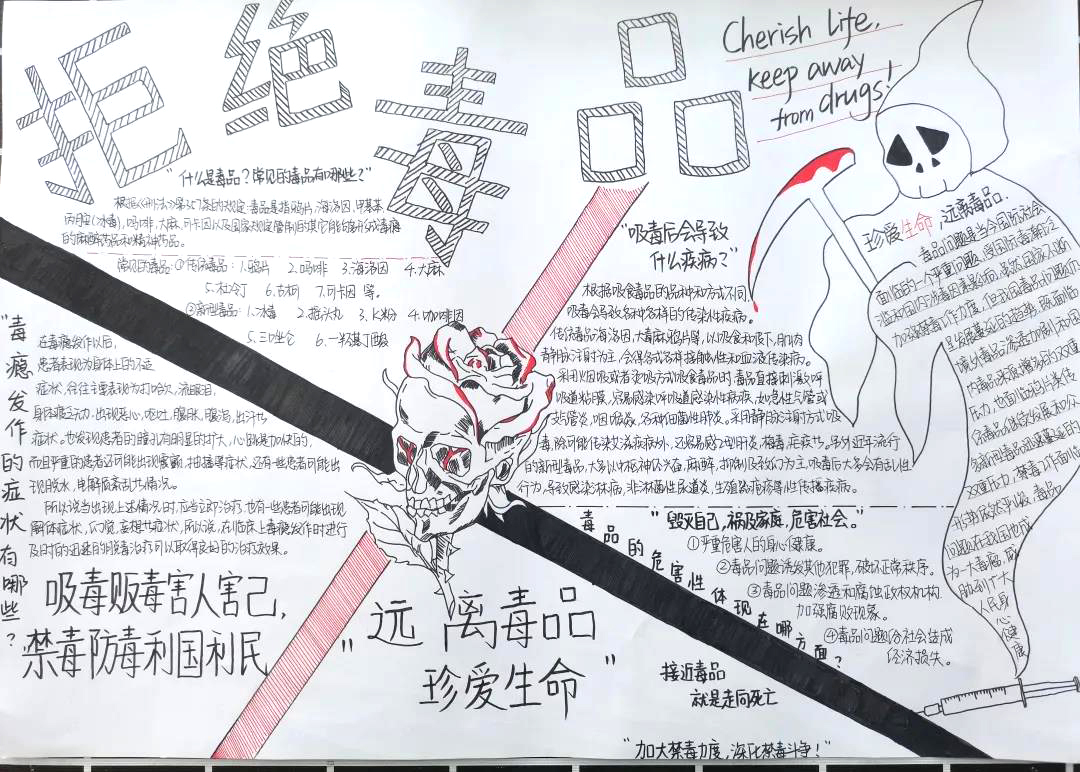 拒绝毒品
Cherish life,
keep away
from drugs!
"什么是毒品?常见的毒品有哪些?"
根据《刑法》第357条的规定,毒品是指鸦片、海洛因、甲基苯
丙胺(冰毒)、吗啡、大麻、可卡因以及国家规定管制的其它能够形成瘾癖
的麻醉药品和精神药品。
常见的毒品:①传统毒品:1.鸦片 2.吗啡 3.海洛因 4.大麻
5.杜冷丁 6.古柯 7.可卡因 等。
②新型毒品:1.冰毒 2.摇头丸 3.K粉 4.咖啡因
5.三唑仑 6.
"毒瘾发作的症状有哪些?"
在毒瘾发作以后,
患者表现为身体上的不适
症状,往往主要表现为打哈欠,流眼泪,
身体疲乏无力,出现恶心,呕吐,腹胀,腹泻,出汗等
症状。也发现患者的瞳孔有明显的扩大,心跳是加快的,
而且严重的患者还可能出现震颤,抽搐等症状,还有一些患者可能出
现脱水,电解质紊乱等情况。
所以说当出现上述情况时,应当立即治疗,也有一些患者可能出现
躯体症状,幻觉,妄想等症状,所以说,在临床上毒瘾发作时进行
及时的迅速的脱毒治疗可以取得良好的治疗效果。
吸毒贩毒害人害己,
禁毒防毒利国利民
"远离毒品
珍爱生命"
"吸毒后会导致
什么疾病?"
根据吸食毒品的品种和方式不同,
吸毒会导致各种各样的传染性疾病。
传统毒品海洛因,大麻,鸦片等,以吸食和皮下,肌肉
静脉注射为主,会得各式各样接触性和血液传染病。
采用烟吸或者烫吸方式吸食毒品时,毒品直接刺激呼
吸道粘膜,容易感染呼吸道感染性疾病,如急性气管或
支气管炎,咽喉炎,各种细菌性肺炎。采用静脉注射方式吸
毒,除可能传染艾滋病外,还容易感染肝炎,梅毒,疟疾等。另外近年流行
的新型毒品,大多以中枢神经兴奋,麻醉,抑制及致幻为主,吸毒后大多会有乱性
行为,导致感染淋病,非淋菌性尿道炎,生殖器疱疹等性传播疾病。
毒品的危害性体现在哪方面?
"毁灭自己,祸及家庭,危害社会。"
①严重危害人的身心健康。
②毒品问题诱发其他犯罪,破坏正常秩序。
③毒品问题渗透和腐蚀政权机构,
加强腐败现象。
④毒品问题给社会造成
经济损失。
接近毒品
就是走向死亡
"加大禁毒力度,深化禁毒斗争!"
珍爱生命,远离毒品.
毒品问题是当今国际社会
面临的一个严重问题,受国际毒潮泛
滥和国内涉毒因素影响,虽然国家不断
加强禁毒工作力度,但我国毒品问题仍
呈发展蔓延的趋势,既面临
境外毒品渗透加剧和国
内毒品来源增多的双重
压力,也面临鸦片类传
统毒品继续发展和众
多新型毒品迅速蔓延的
双重压力,禁毒工作面临
形势依然严峻。毒品
问题在我国也成
为一大毒瘤,威
胁到广大
人民身
心健
康